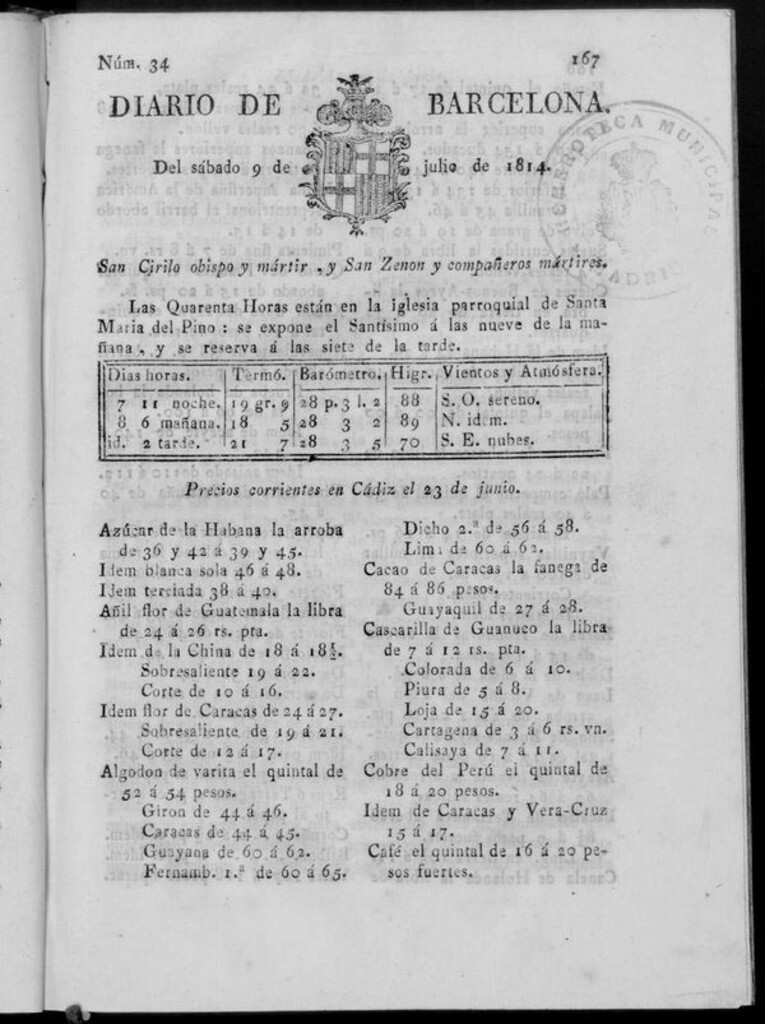 Núm. 34
167
DIARIO DE BARCELONA.
Del sábado 9 de julio de 1814.
HEMEROTECA MUNICIPAL
MADRID
San Cirilo obispo y mártir, y San Zenon y compañeros mártires.
Las Quarenta Horas están en la iglesia parroquial de Santa
Maria del Pino : se expone el Santísimo á las nueve de la ma-
ñana, y se reserva á las siete de la tarde.
Dias horas. Termó. Barómetro. Higr. Vientos y Atmósfera.
7 11 noche. 19 gr. 9 28 p. 3 l. 2 88 S. O. sereno.
8 6 mañana. 18 5 28 3 2 89 N. idem.
id. 2 tarde. 21 7 28 3 5 70 S. E. nubes.
Precios corrientes en Cádiz el 23 de junio.
Azúcar de la Habana la arroba
de 36 y 42 á 39 y 45.
Idem blanca sola 46 á 48.
Idem terciada 38 á 40.
Añil flor de Guatemala la libra
de 24 á 26 rs. pta.
Idem de la China de 18 á 18½.
Sobresaliente 19 á 22.
Corte de 10 á 16.
Idem flor de Caracas de 24 á 27.
Sobresaliente de 19 á 21.
Corte de 12 á 17.
Algodon de varita el quintal de
52 á 54 pesos.
Giron de 44 á 46.
Caracas de 44 á 45.
Guayana de 60 á 62.
Fernamb. 1.ª de 60 á 65.
Dicho 2.ª de 56 á 58.
Lima de 60 á 62.
Cacao de Caracas la fanega de
84 á 86 pesos.
Guayaquil de 27 á 28.
Cascarilla de Guanuco la libra
de 7 á 12 rs. pta.
Colorada de 6 á 10.
Piura de 5 á 8.
Loja de 15 á 20.
Cartagena de 3 á 6 rs. vn.
Calisaya de 7 á 11.
Cobre del Perú el quintal de
18 á 20 pesos.
Idem de Caracas y Vera-Cruz
15 á 17.
Café el quintal de 16 á 20 pe-
sos fuertes.